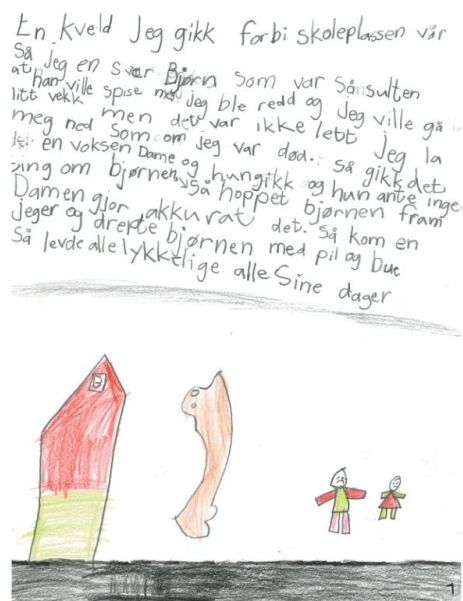 En kveld Jeg gikk forbi skoleplassen vår
Så jeg en svær Bjørn som var Sånsulten
at han ville spise meg jeg ble redd og Jeg ville gå
litt vekk men det var ikke lett Jeg la
meg ned som om jeg var død. så gikk det
en voksen Dame og hun gikk og hun ante inge
zing om bjørnen. Så hoppet bjørnen fram
Damen gjor akkurat det. Så kom en
jeger og drepte bjørnen med pil og bue
Så levde alle lykktlige alle Sine dager
1